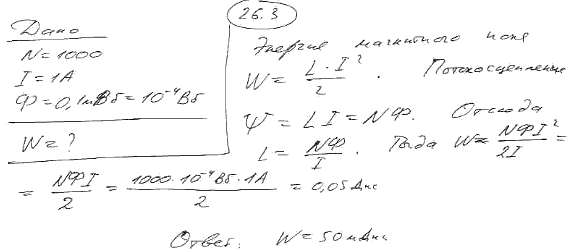 26.3
Дано
N = 1000
I = 1А
Ф = 0,1мВб = 10⁻⁴Вб
W = ?
Энергия магнитного поля
W = L·I²/2. Потокосцепление
Ψ = LI = NФ. Отсюда
L = NФ/I. Тогда W = NФI²/2I =
= NФI/2 = 1000·10⁻⁴Вб·1А/2 = 0,05Дж
Ответ: W = 50мДж